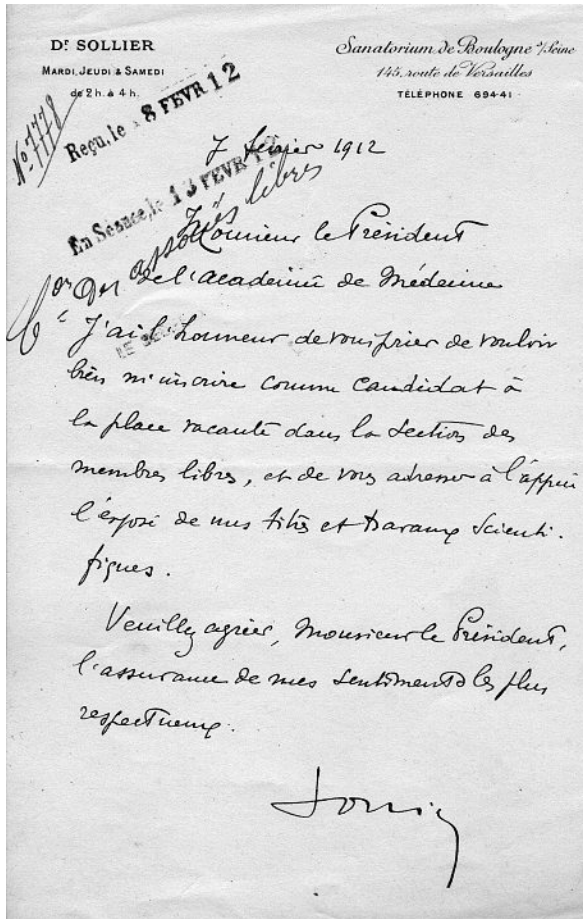 Dr SOLLIER
MARDI, JEUDI & SAMEDI
de 2 h. à 4 h.
Sanatorium de Boulogne s/Seine
145, route de Versailles
TÉLÉPHONE 694-41
No 7778
Reçu, le 8 FEVR 12
7 février 1912
En Séance, le 13 FEVR 12
Con des associés libres
Monsieur le Président
de l'académie de Médecine
J'ai l'honneur de vous prier de vouloir
bien m'inscrire comme candidat à
la place vacante dans la section des
membres libres, et de vous adresser à l'appui
l'exposé de mes titres et travaux scienti-
fiques.
Veuillez agréer, Monsieur le Président,
l'assurance de mes sentiments les plus
respectueux.
Sollier